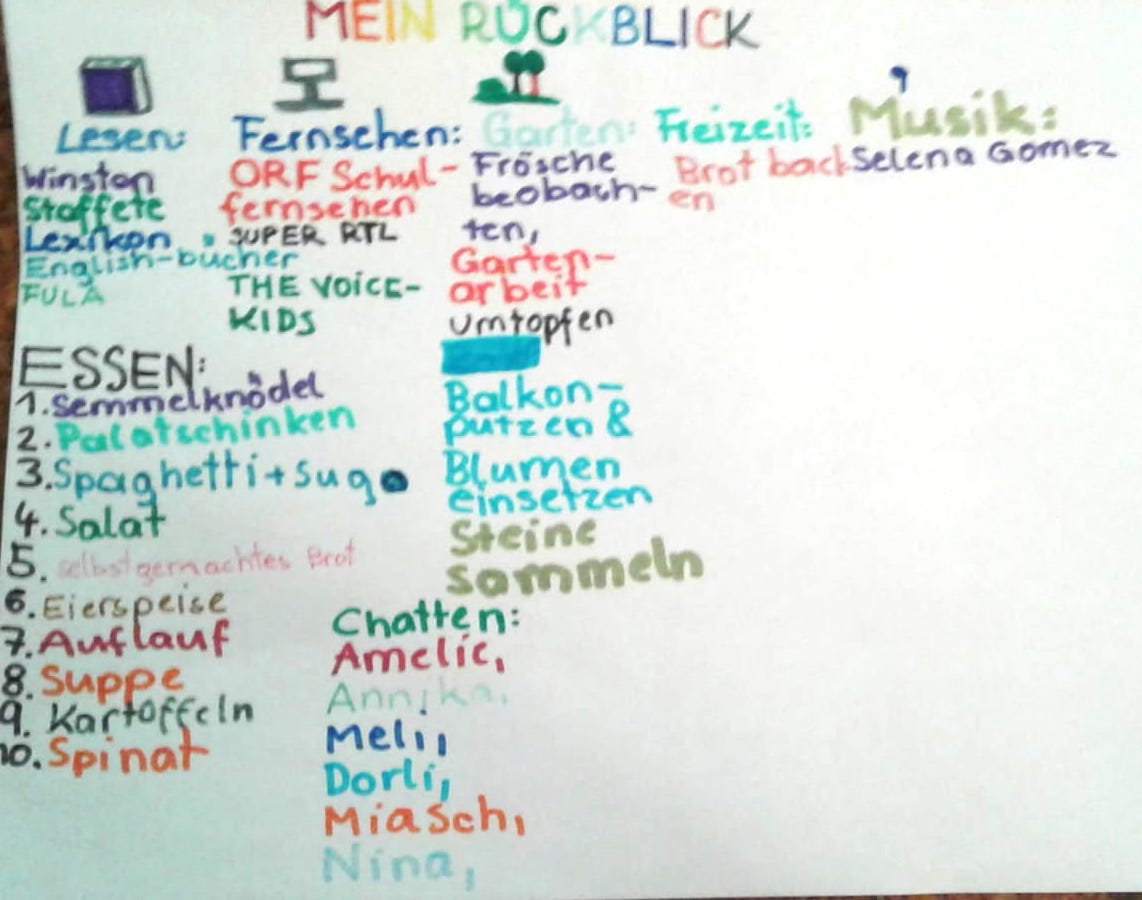 MEIN RÜCKBLICK
Lesen:
Winston
Staffete
Lexikon
English-bücher
FULA
Fernsehen:
ORF Schul-
fernsehen
SUPER RTL
THE VOICE-
KIDS
Garten:
Frösche
beobach-
ten,
Garten-
arbeit
umtopfen
Balkon-
putzen &
Blumen
einsetzen
Steine
sammeln
Freizeit:
Brot back
en
Musik:
Selena Gomez
ESSEN:
1. Semmelknödel
2. Palatschinken
3. Spaghetti + Sugo
4. Salat
5. selbstgemachtes Brot
6. Eierspeise
7. Auflauf
8. Suppe
9. Kartoffeln
10. Spinat
Chatten:
Amelie,
Annika,
Meli,
Dorli,
Miasch,
Nina,